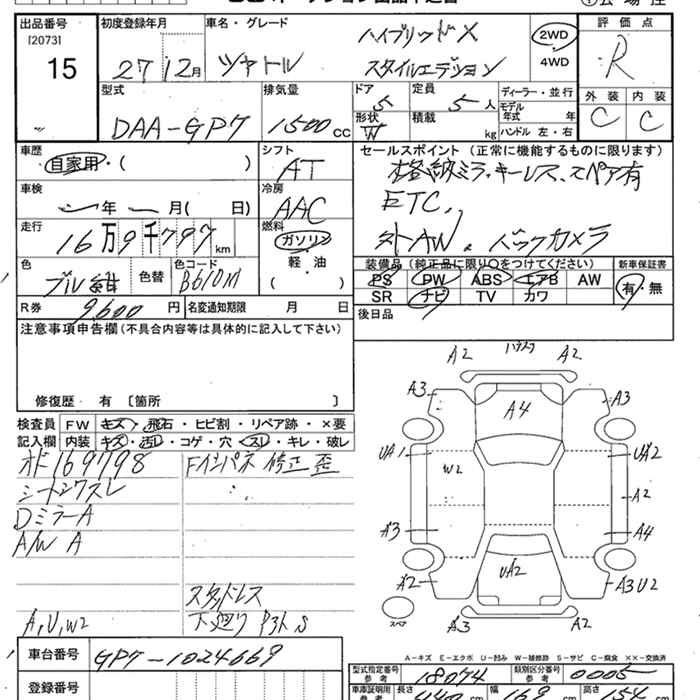 出品番号
[2073]
15
初度登録年月
27 12月
車名・グレード
シャトル
ハイブリッドX
スタイルエディション
2WD
4WD
評価点
R
外装 内装
C C
型式
DAA-GP7
排気量
1500cc
ドア 5
定員 5人
形状 W
積載 kg
ディーラー・並行
モデル年式 年
ハンドル 左・右
車歴
自家用・( )
シフト
AT
車検
年 月( 日)
冷房
AAC
走行
16万9千797km
燃料
ガソリン
軽・油
( )
色
色替
色コード
R券 9600円
名変通知期限 月 日
セールスポイント(正常に機能するものに限ります)
キーレス、スペア有
ETC,
AW バックカメラ
装備品(純正品に限り○をつけてください)
新車保証書
PS PW ABS エアB AW
SR ナビ TV カワ
有・無
後日品
注意事項申告欄(不具合内容等は具体的に記入して下さい)
修復歴 有 〔箇所 〕
検査員 FW キズ・飛石・ヒビ割・リペア跡・×要
記入欄 内装 キズ・汚レ・コゲ・穴・スレ・キレ・破レ
オド169798
Fインパネ 修正歪
シートシワスレ
DミラーA
A/W A
スタッドレス
A,U,W2
下廻り
A2 A2
A3 A4 A3
UA1 W2 UA2
A2
A3 A4
A2 UA2 A3U2
スペア
A3 A2
A-キズ E-エクボ U-凹み W-補修跡 S-サビ C-腐食 ××-交換済
車台番号 GP7-1024669
登録番号
型式指定番号 参考 18074
類別区分番号 参考 0005
車庫証明用 参考
長さ 440 cm
幅 169 cm
高さ 154 cm